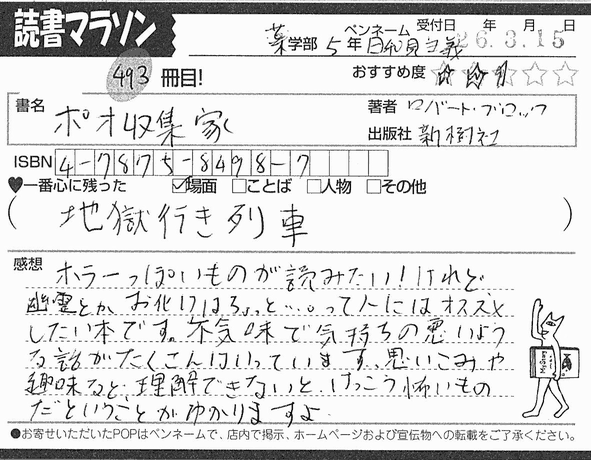 読書マラソン
ペンネーム 受付日 年 月 日
薬学部 5年 日和見主義 26.3.15
493 冊目!
おすすめ度 ☆☆☆☆☆
書名 ポオ収集家
著者 ロバート・ブロック
出版社 新樹社
ISBN 4-7875-8498-7
♥一番心に残った ☑場面 □ことば □人物 □その他
(地獄行き列車)
感想
ホラーっぽいものが読みたい!けれど
幽霊とか、お化けはちょっと…。って人にはオススメ
したい本です。不気味で気持ちの悪いよう
な話がたくさんはいっています。思いこみや
趣味など、理解できないと、けっこう怖いもの
だということがわかりますよ。
●お寄せいただいたPOPはペンネームで、店内で掲示、ホームページおよび宣伝物への転載をご了承ください。